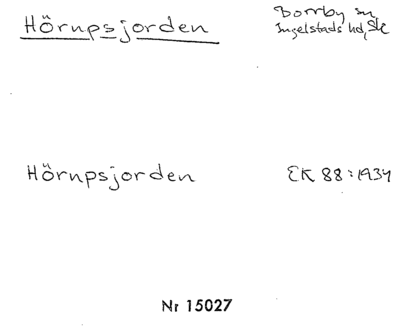 Hörnpsjorden Borrby sn,
Ingelstads hd, Sk
Hörnpsjorden EK 88:1934
Nr 15027